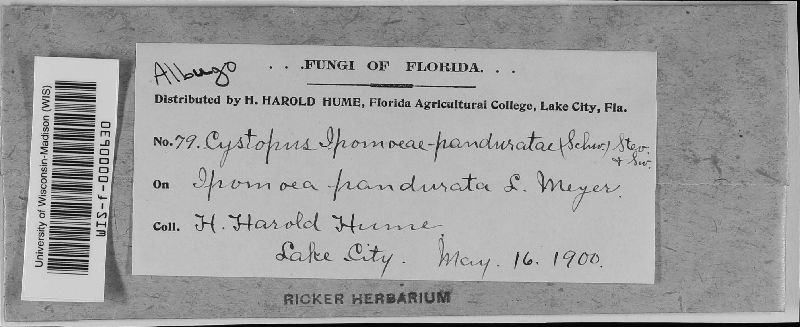 Albugo
. . .FUNGI OF FLORIDA. . .
Distributed by H. HAROLD HUME, Florida Agricultural College, Lake City, Fla.
No. 79. Cystopus Ipomoeae-panduratae (Schw.) Stev. & Sw.
On Ipomoea pandurata L. Meyer.
Coll. H. Harold Hume.
Lake City. May. 16. 1900.
RICKER HERBARIUM
University of Wisconsin-Madison (WIS)
WIS-f-0000630